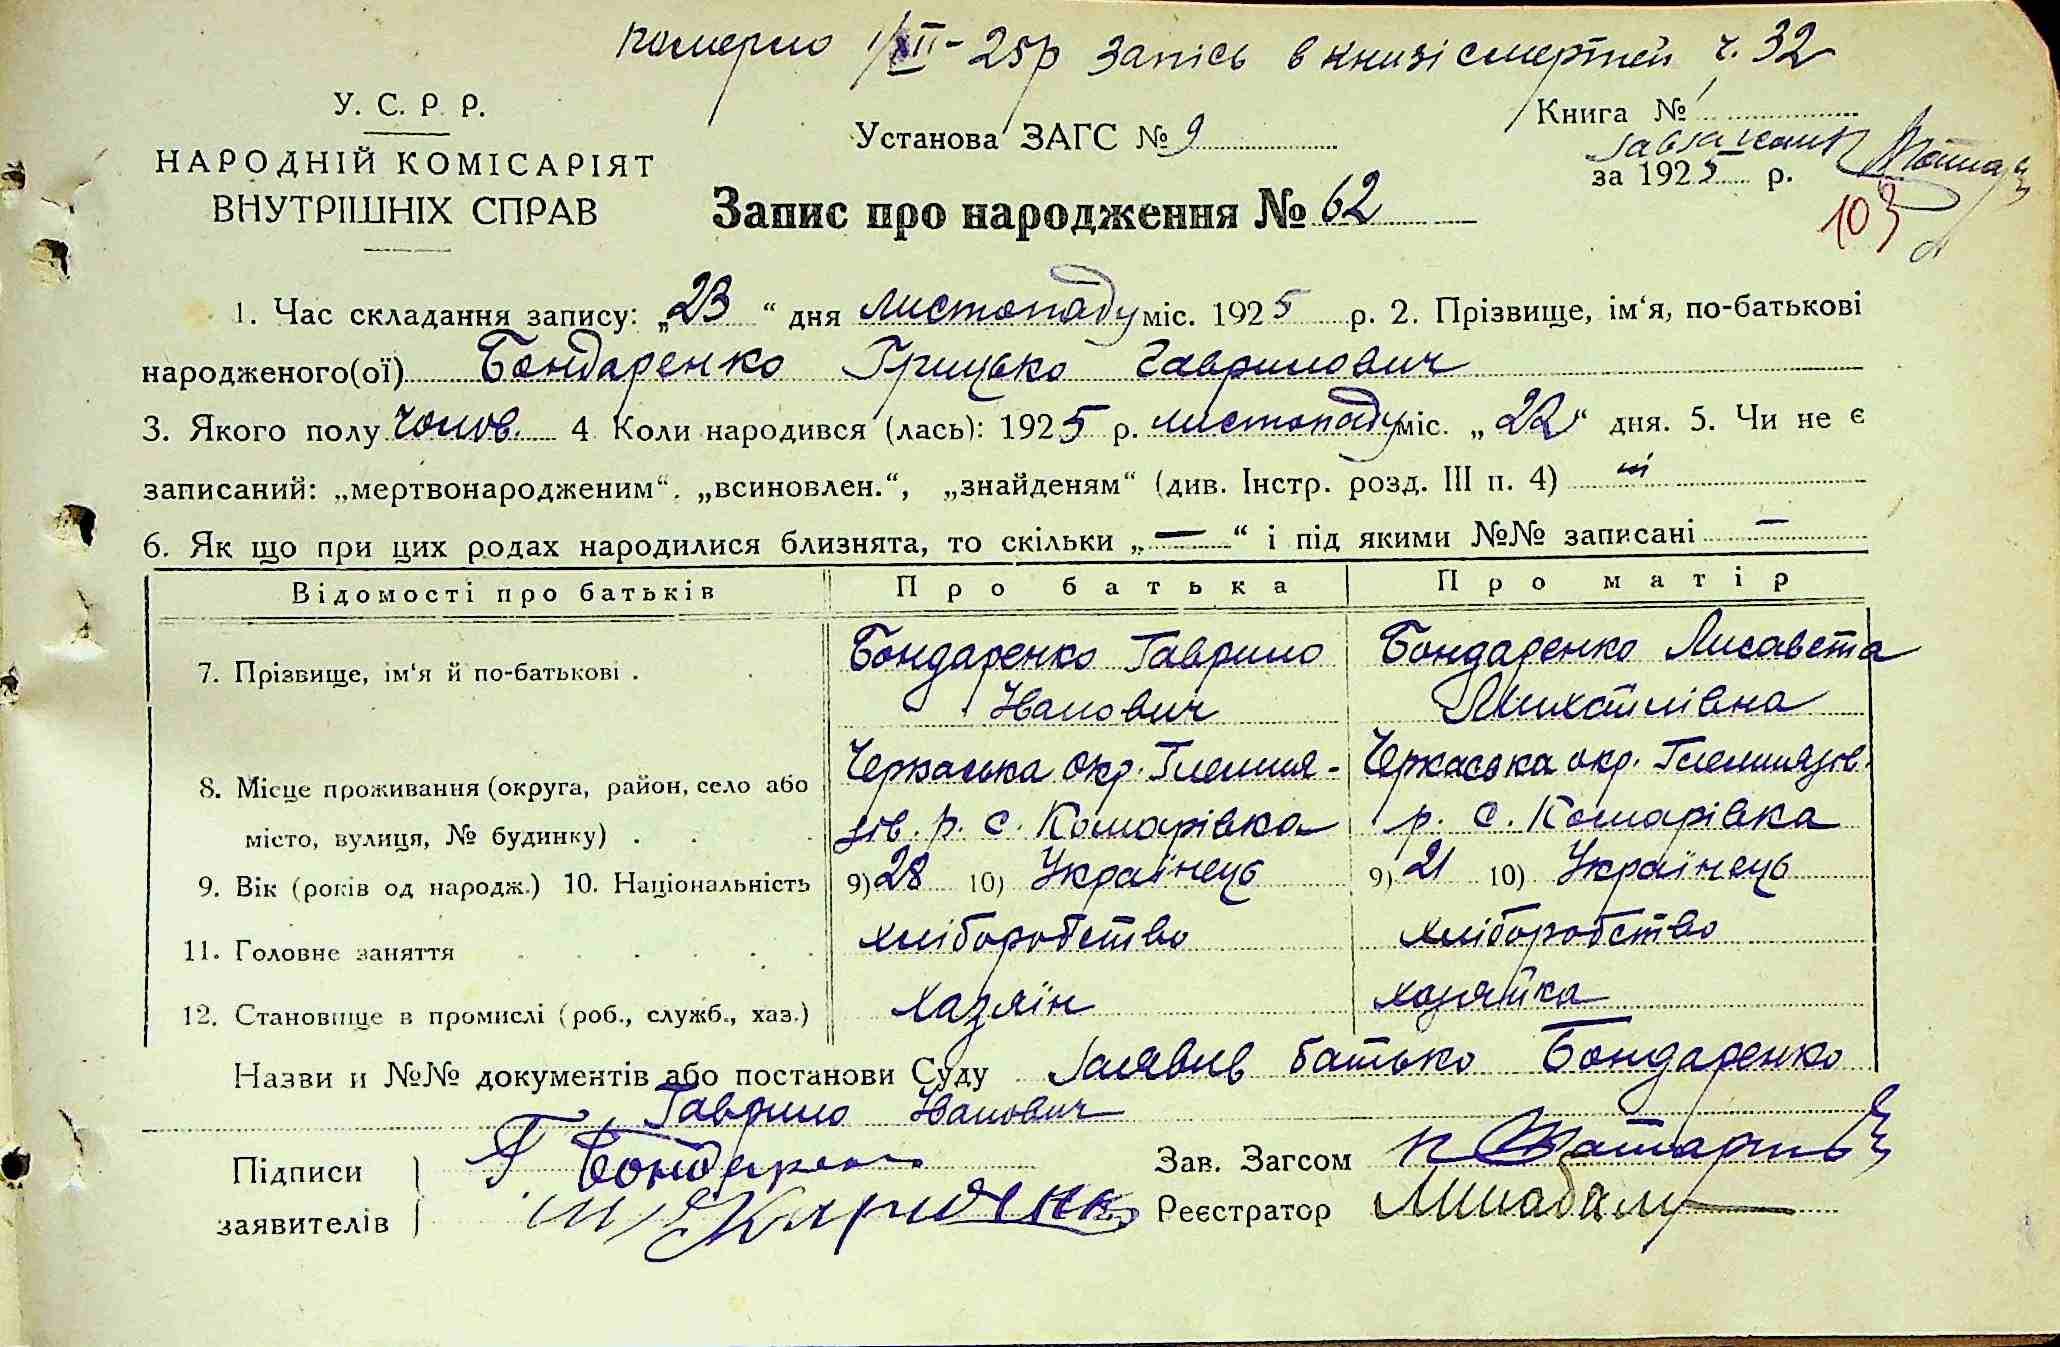 померло 1/XII-25р запись в книзі смертей ч. 32
У. С. Р. Р.
НАРОДНІЙ КОМІСАРІЯТ
ВНУТРІШНІХ СПРАВ
Установа ЗАГС № 9
Книга №
за 1925 р.
103
Запис про народження № 62
1. Час складання запису: „23“ дня листопаду міс. 1925 р. 2. Прізвище, ім'я, по-батькові
народженого(ої) Бондаренко Грицько Гаврилович
3. Якого полу чолов. 4 Коли народився (лась): 1925 р. листопаду міс. „22“ дня. 5. Чи не є
записаний: „мертвонародженим“, „всиновлен.“, „знайденям“ (див. Інстр. розд. III п. 4) ні
6. Як що при цих родах народилися близнята, то скільки „—“ і під якими №№ записані —
Відомості про батьків Про батька Про матір
7. Прізвище, ім'я й по-батькові . Бондаренко Гаврило Бондаренко Лисавета
Іванович Михайлівна
8. Місце проживання (округа, район, село або Черкаська окр. Глемия- Черкаська окр. Гельмязів.
місто, вулиця, № будинку) . зів. р. с. Комарівка р. с. Комарівка
9. Вік (років од народж.) 10. Національність 9) 28 10) Українець 9) 21 10) Українець
11. Головне заняття хліборобство хліборобство
12. Становище в промислі (роб., служб., хаз.) хазяїн хазяйка
Назви и №№ документів або постанови Суду заявив батько Бондаренко
Гаврило Іванович
Підписи Г. Бондаренко Зав. Загсом
заявителів Реєстратор